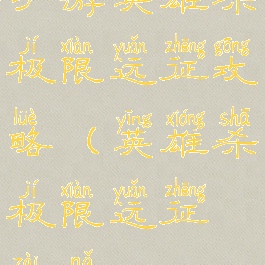 游 英 雄 杀
jí xiàn yuǎn zhēng gōng
极 限 远 征 攻
lüè yīng xióng shā
略 ( 英 雄 杀
jí xiàn yuǎn zhēng
极 限 远 征